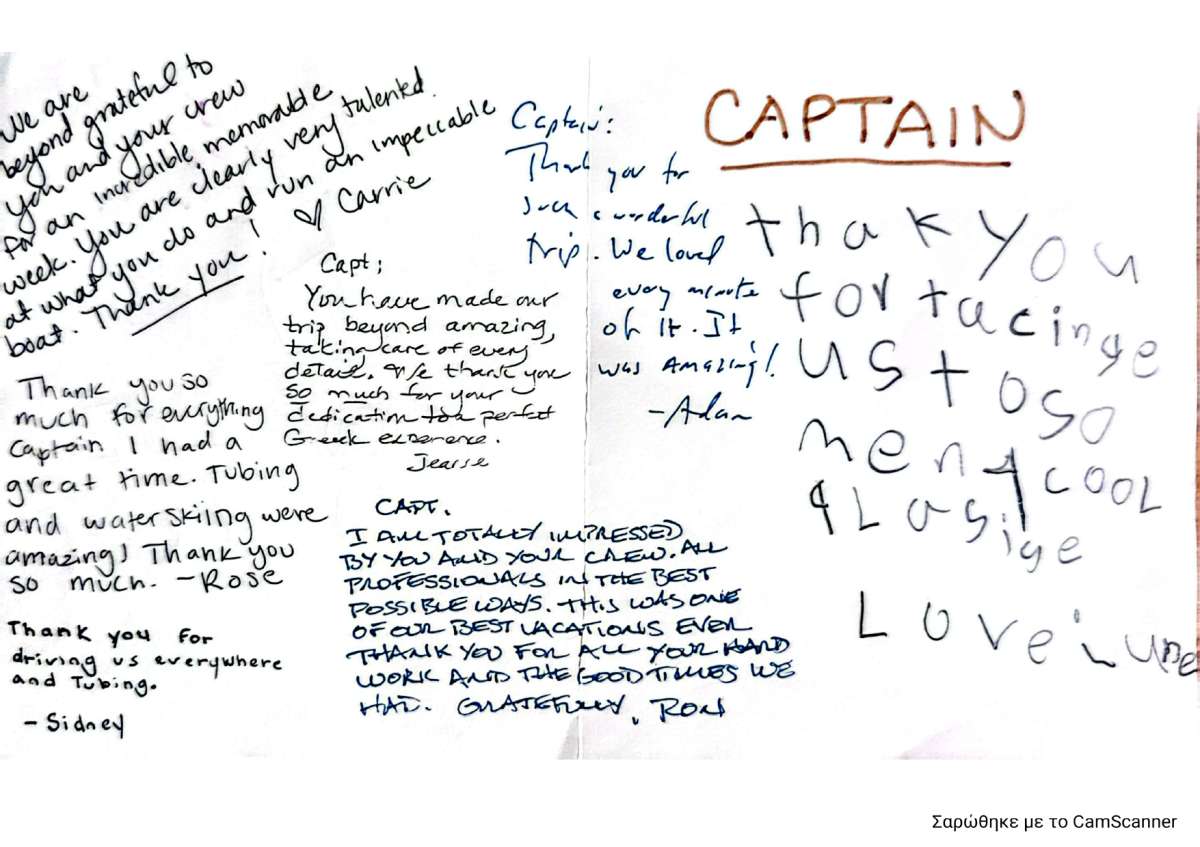 We are
beyond grateful to
you and your crew
for an incredible, memorable
week. You are clearly very talented
at what you do and run an impeccable
boat. Thank you! ♡ Carrie
Capt;
You have made our
trip beyond amazing,
taking care of every
detail. We thank you
so much for your
dedication to a perfect
Greek experence.
Captain:
Thank you for
such a wonderful
trip. We loved
every minute
of it. It
was Amazing!
-Adam
Thank you so
much for everything
Captain I had a
great time. Tubing
and waterskiing were
amazing! Thank you
so much. -Rose
Thank you for
driving us everywhere
and Tubing.
- Sidney
CAPT.
I AM TOTALLY IMPRESSED
BY YOU AND YOUR CREW. ALL
PROFESSIONALS IN THE BEST
POSSIBLE WAYS. THIS WAS ONE
OF OUR BEST VACATIONS EVER
THANK YOU FOR ALL YOUR HARD
WORK AND THE GOOD TIMES WE
HAD. GRATEFULLY, RON
CAPTAIN
thak you
for tacinge
us to so
meny cool
Σαρώθηκε με το CamScanner